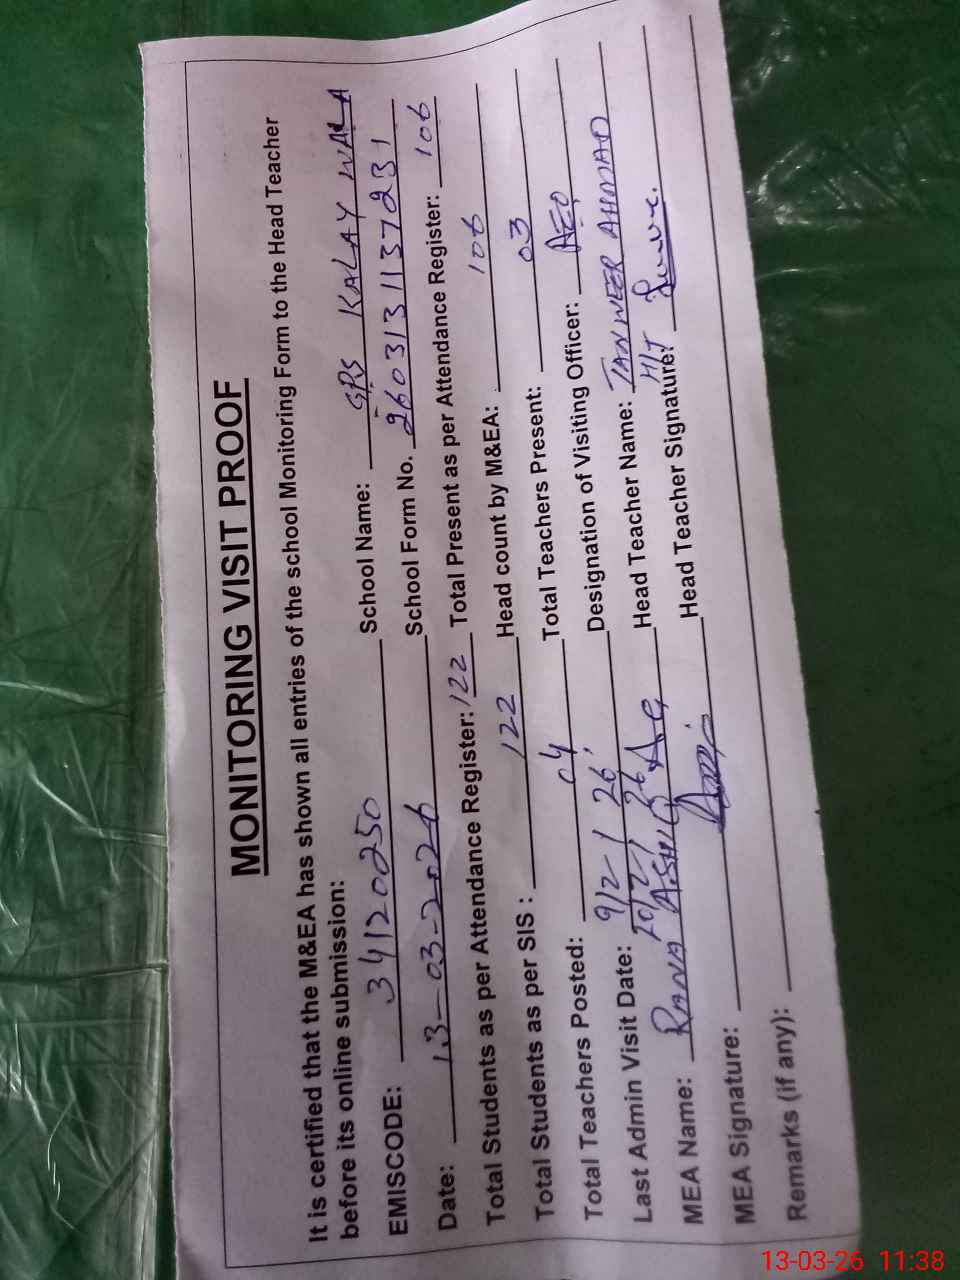 MONITORING VISIT PROOF
It is certified that the M&EA has shown all entries of the school Monitoring Form to the Head Teacher
before its online submission:
EMISCODE: 34120250 School Name: GPS KALAY WALA
Date: 13-03-2026 School Form No. 2603131137231
Total Students as per Attendance Register: 122 Total Present as per Attendance Register: 106
Total Students as per SIS : 122 Head count by M&EA: 106
Total Teachers Posted: 04 Total Teachers Present: 03
Last Admin Visit Date: 9/2/26 Designation of Visiting Officer: AEO
MEA Name: RANA ASHIQ Head Teacher Name: TANWEER AHMAD
MEA Signature: Head Teacher Signature: H/T
Remarks (if any):
13-03-26 11:38